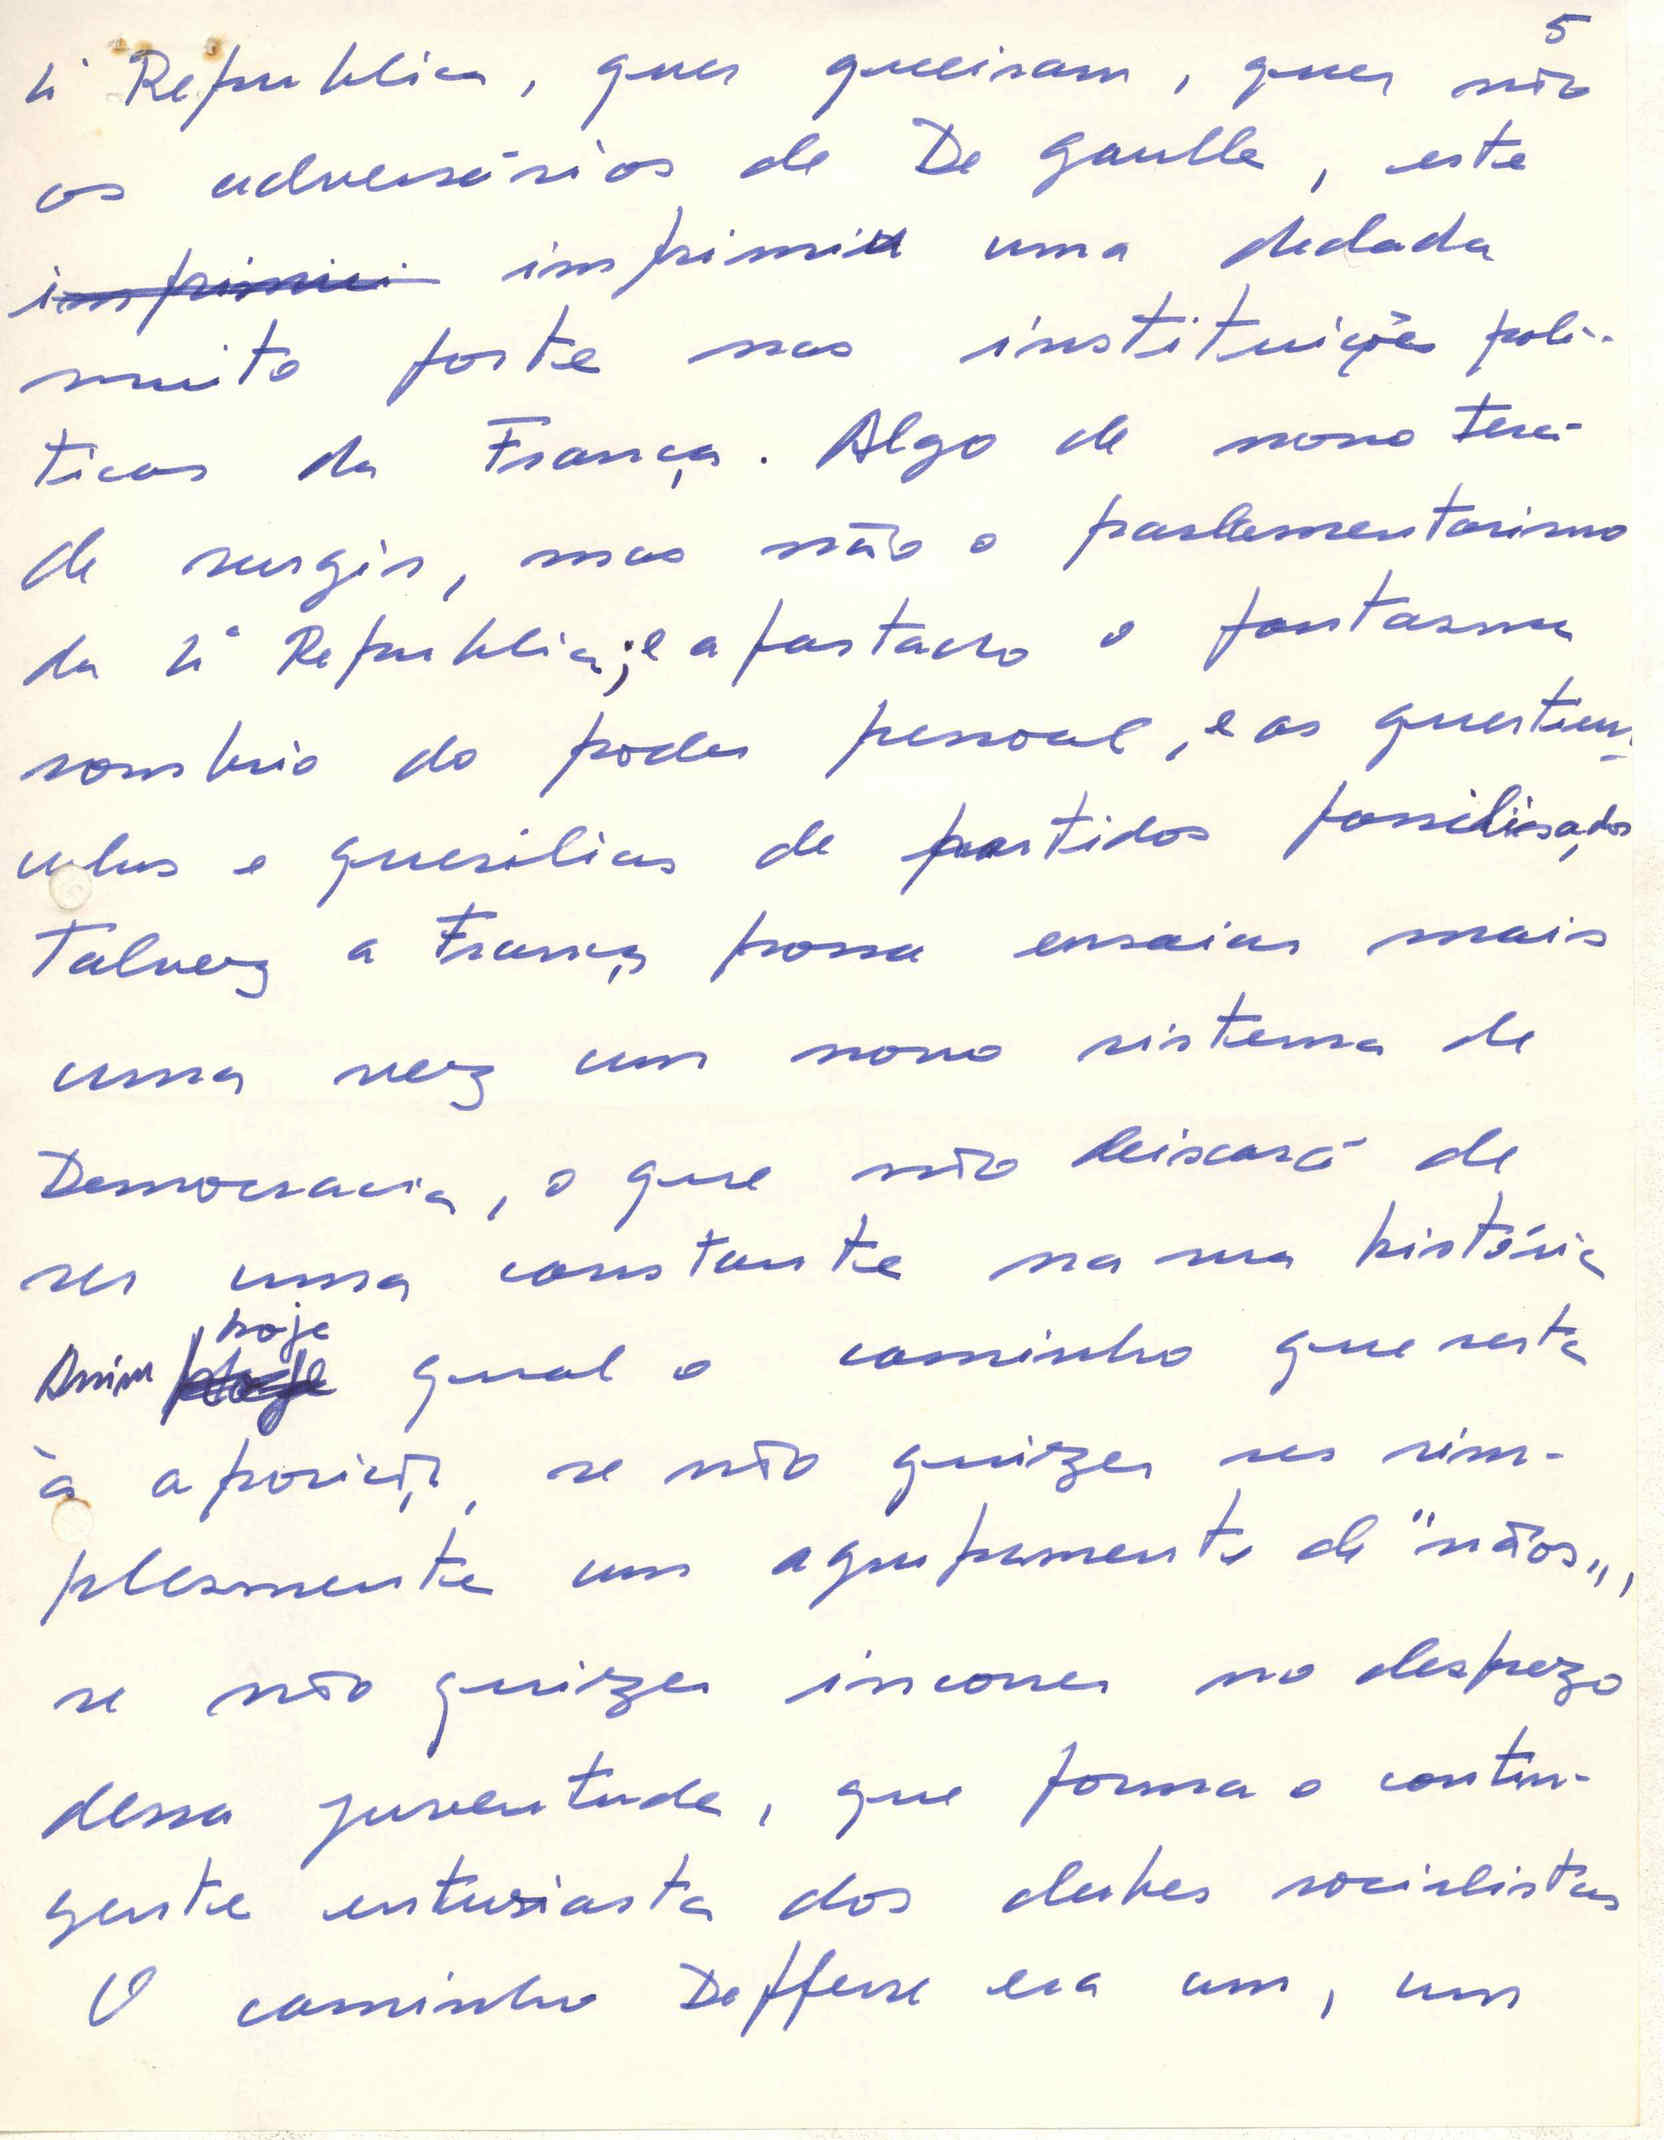 5
4ª Republica, quer queiram, quer não
os adversários de De Gaulle, este
imprimiu imprimiu uma dedada
muito forte nas instituições polí-
ticas da França. Algo de novo terá
de surgir, mas não o parlamentarismo
da 4ª Republica; e afastado o fantasma
sombrio do poder pessoal, e as questiun-
culas e quesilias de partidos fossilisados,
Talvez a França possa ensaiar mais
uma vez um novo sistema de
Democracia, o que não deixará de
ser uma constante na sua história
hoje
Assim qual o caminho que resta
à oposição, se não quizer ser sim-
plesmente um agrupamento de "nãos",
se não quizer incorrer no desprezo
dessa juventude, que forma o contin-
gente entusiasta dos clubes socialistas
O caminho Defferre era um, um